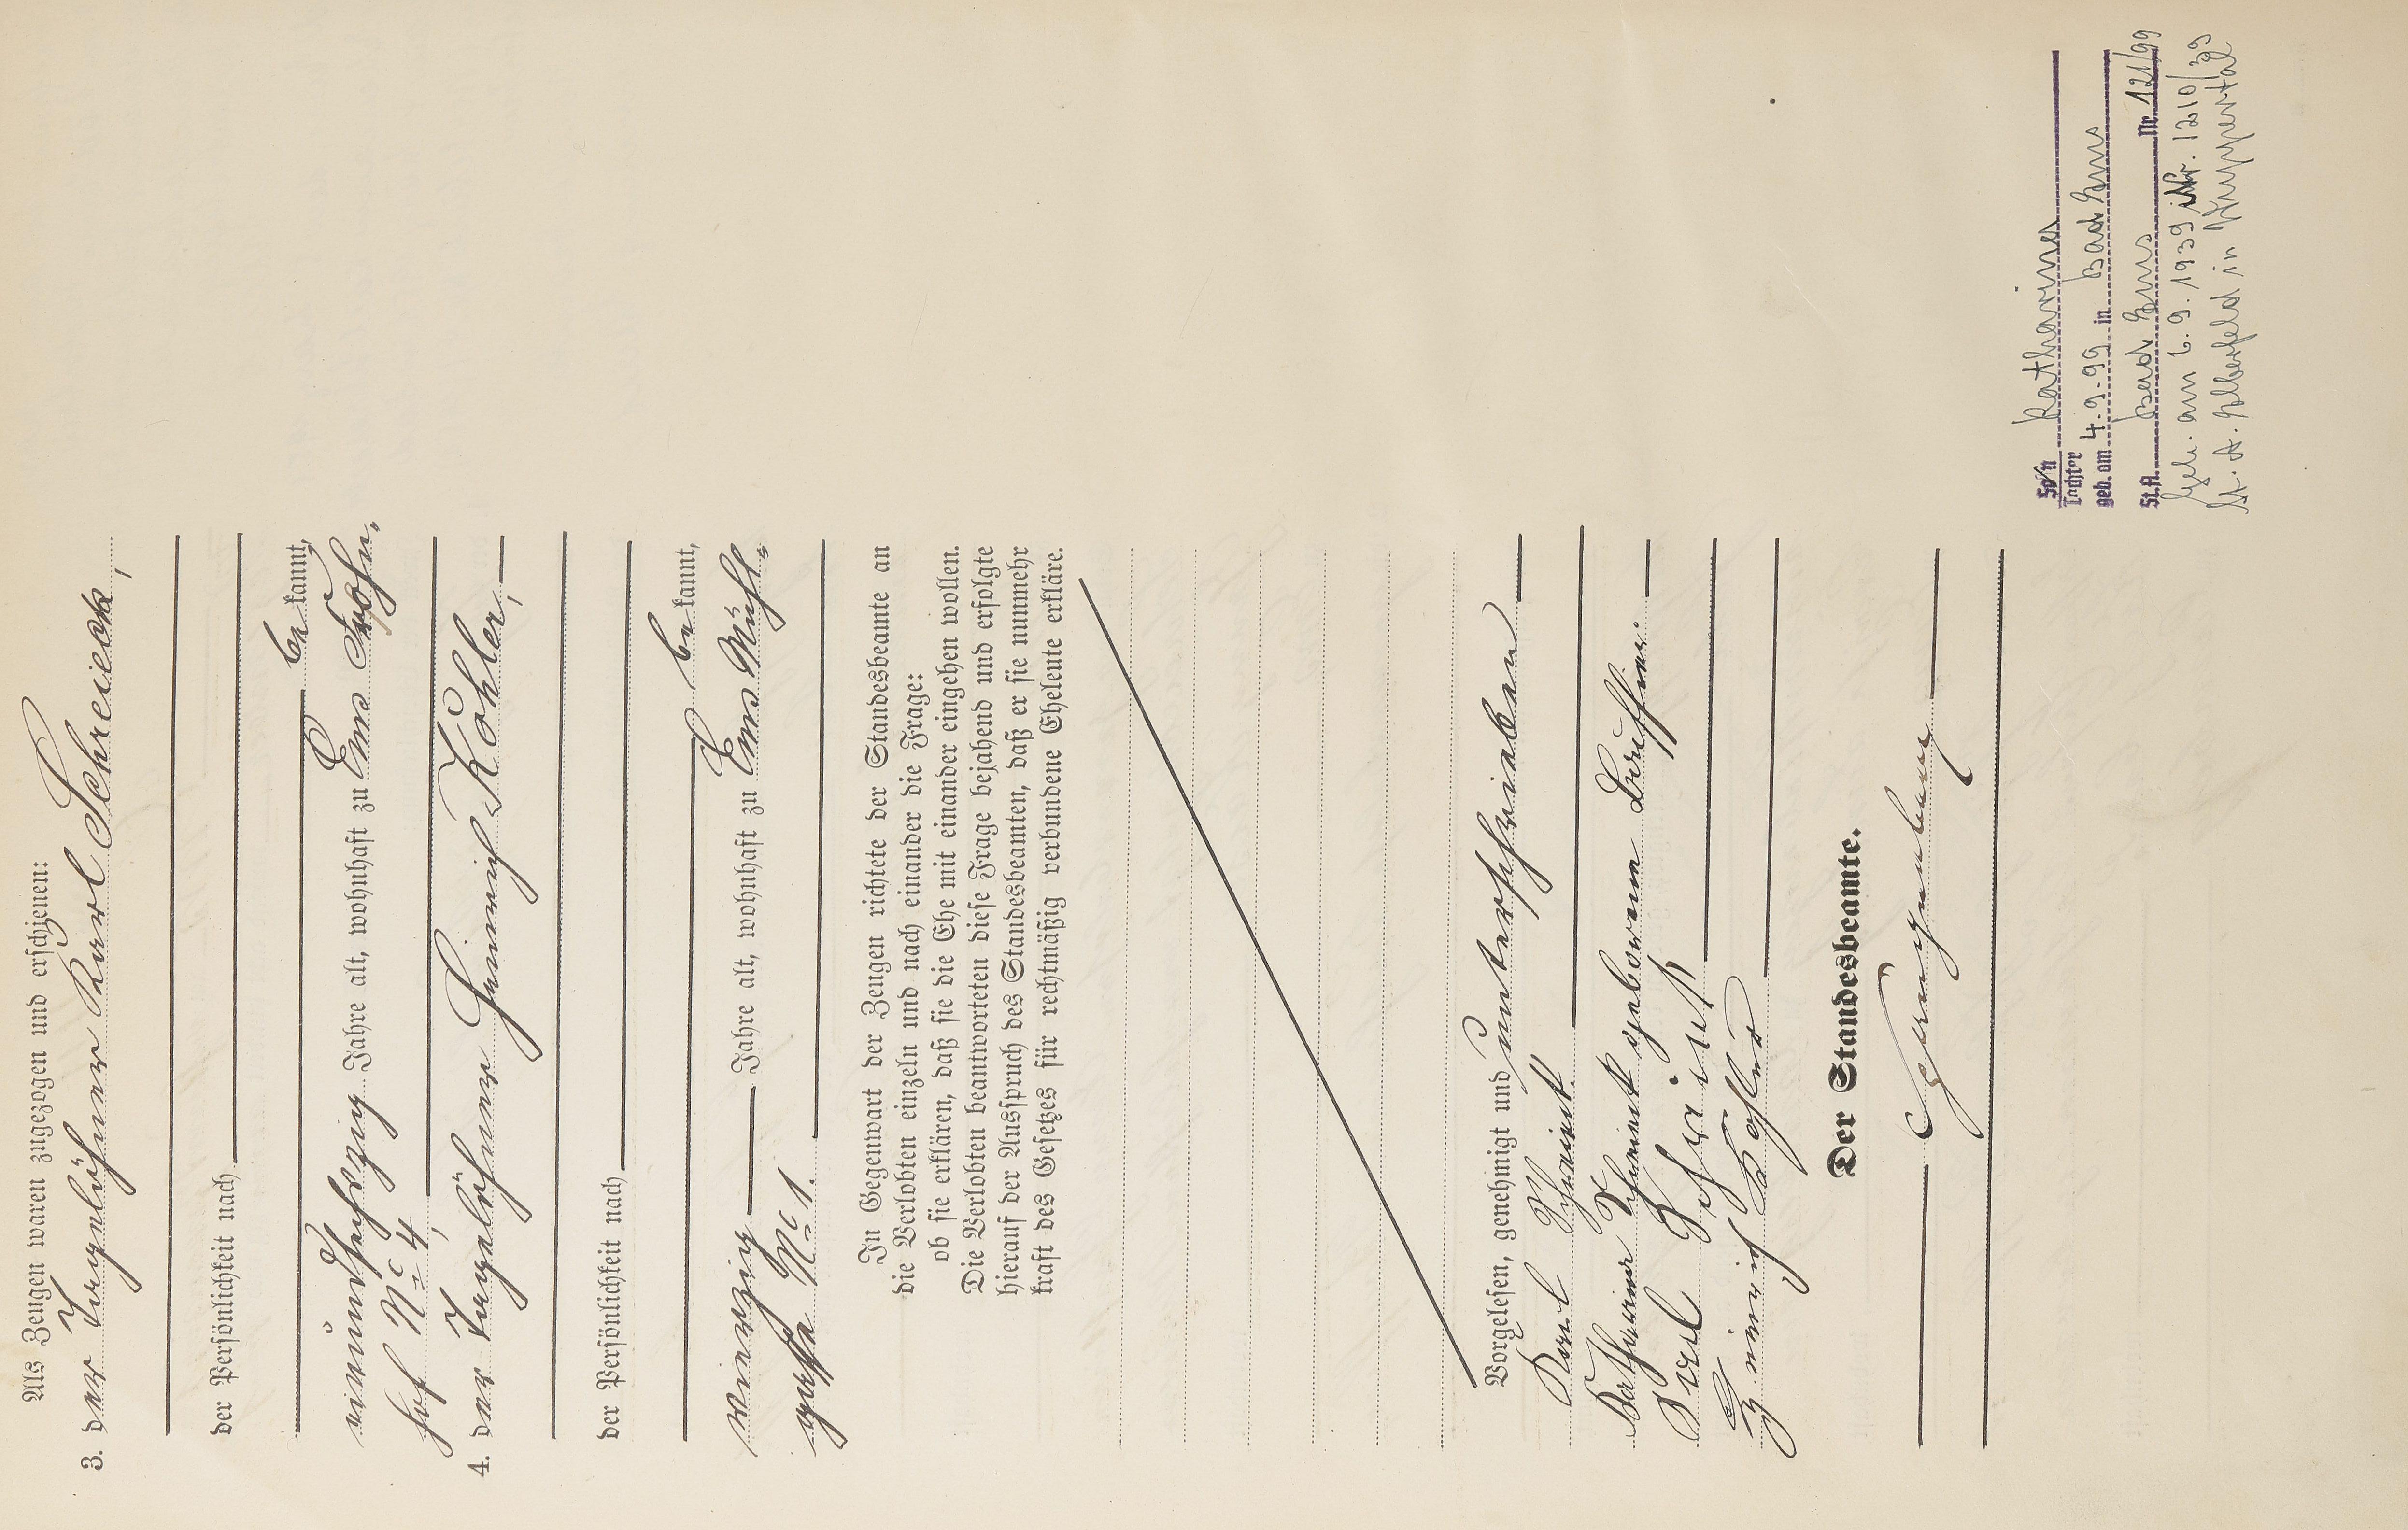 Als Zeugen waren zugezogen und erschienen:
3. der Tagelöhner Karl Schreieck,
der Persönlichkeit nach
bekannt,
einundsechszig Jahre alt, wohnhaft zu Ems Frohn-
hof No 4,
4. der Tagelöhner Heinrich Köhler,
der Persönlichkeit nach
bekannt,
vierzig Jahre alt, wohnhaft zu Ems Mühl-
gasse No 1.
In Gegenwart der Zeugen richtete der Standesbeamte an
die Verlobten einzeln und nach einander die Frage:
ob sie erklären, daß sie die Ehe mit einander eingehen wollen.
Die Verlobten beantworteten diese Frage bejahend und erfolgte
hierauf der Ausspruch des Standesbeamten, daß er sie nunmehr
kraft des Gesetzes für rechtmäßig verbundene Eheleute erkläre.
Vorgelesen, genehmigt und unterschrieben
Karl
Katharina geborene
Karl
Heinrich Köhler
Der Standesbeamte.
Sohn Katharina
Tochter
geb. am 4.9.99 in Bad Ems
St.A. Bad Ems Nr. 121/99
Geh. am 6.9.1939 Nr. 1210/39
St. A. Elberfeld in Wuppertal